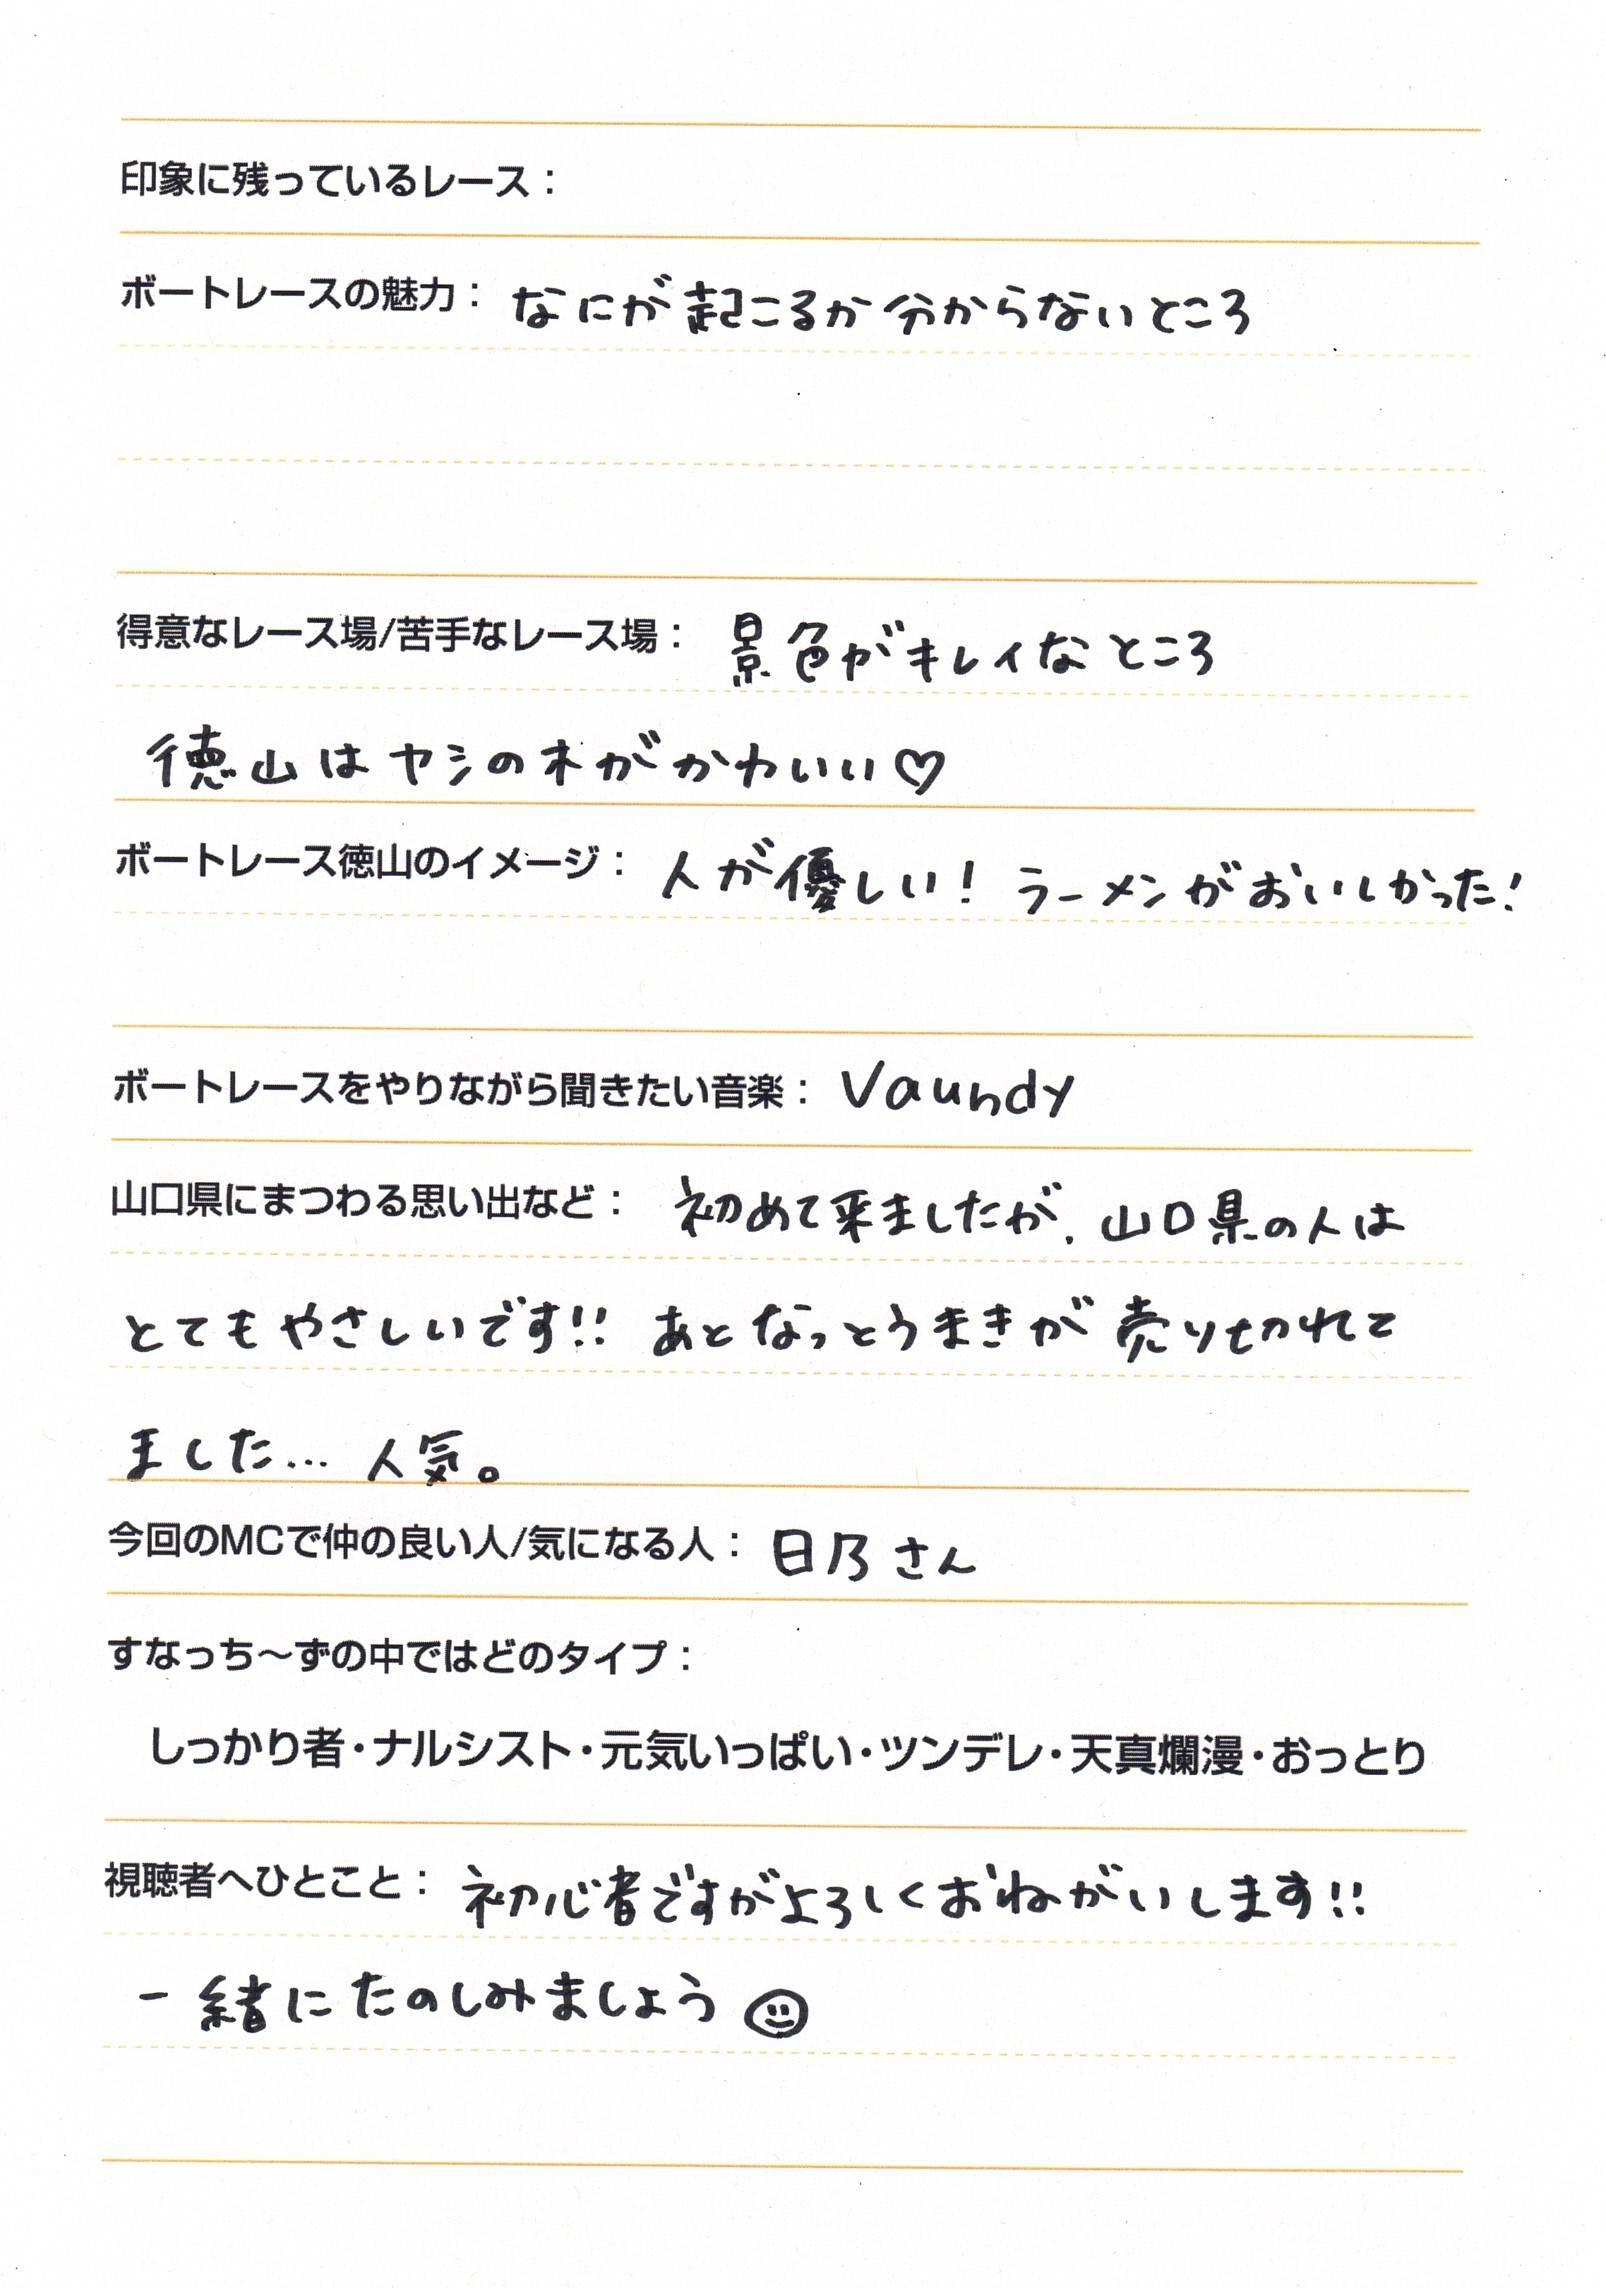 印象に残っているレース：
ボートレースの魅力： なにが起こるか分からないところ
得意なレース場/苦手なレース場： 景色がキレイなところ
徳山はヤシの木がかわいい♡
ボートレース徳山のイメージ： 人が優しい！ ラーメンがおいしかった！
ボートレースをやりながら聞きたい音楽： Vaundy
山口県にまつわる思い出など： 初めて来ましたが、山口県の人は
とてもやさしいです!! あとなっとうまきが売り切れて
ました… 人気。
今回のMCで仲の良い人/気になる人： 日乃さん
すなっち～ずの中ではどのタイプ：
しっかり者・ナルシスト・元気いっぱい・ツンデレ・天真爛漫・おっとり
視聴者へひとこと： 初心者ですがよろしくおねがいします!!
一緒にたのしみましょう☺